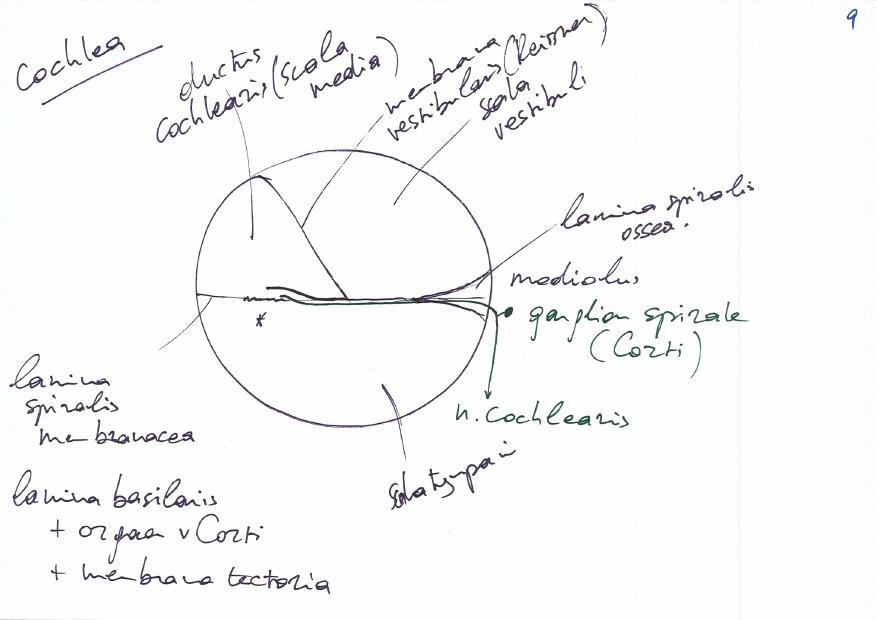 9
Cochlea
ductus
cochlearis (scala
media)
membrana
vestibularis (Reissner)
scala
vestibuli
lamina spiralis
ossea.
modiolus
ganglion spirale
(Corti)
n. cochlearis
*
lamina
spiralis
membranacea
scala tympani
lamina basilaris
+ orgaan v Corti
+ membrana tectoria